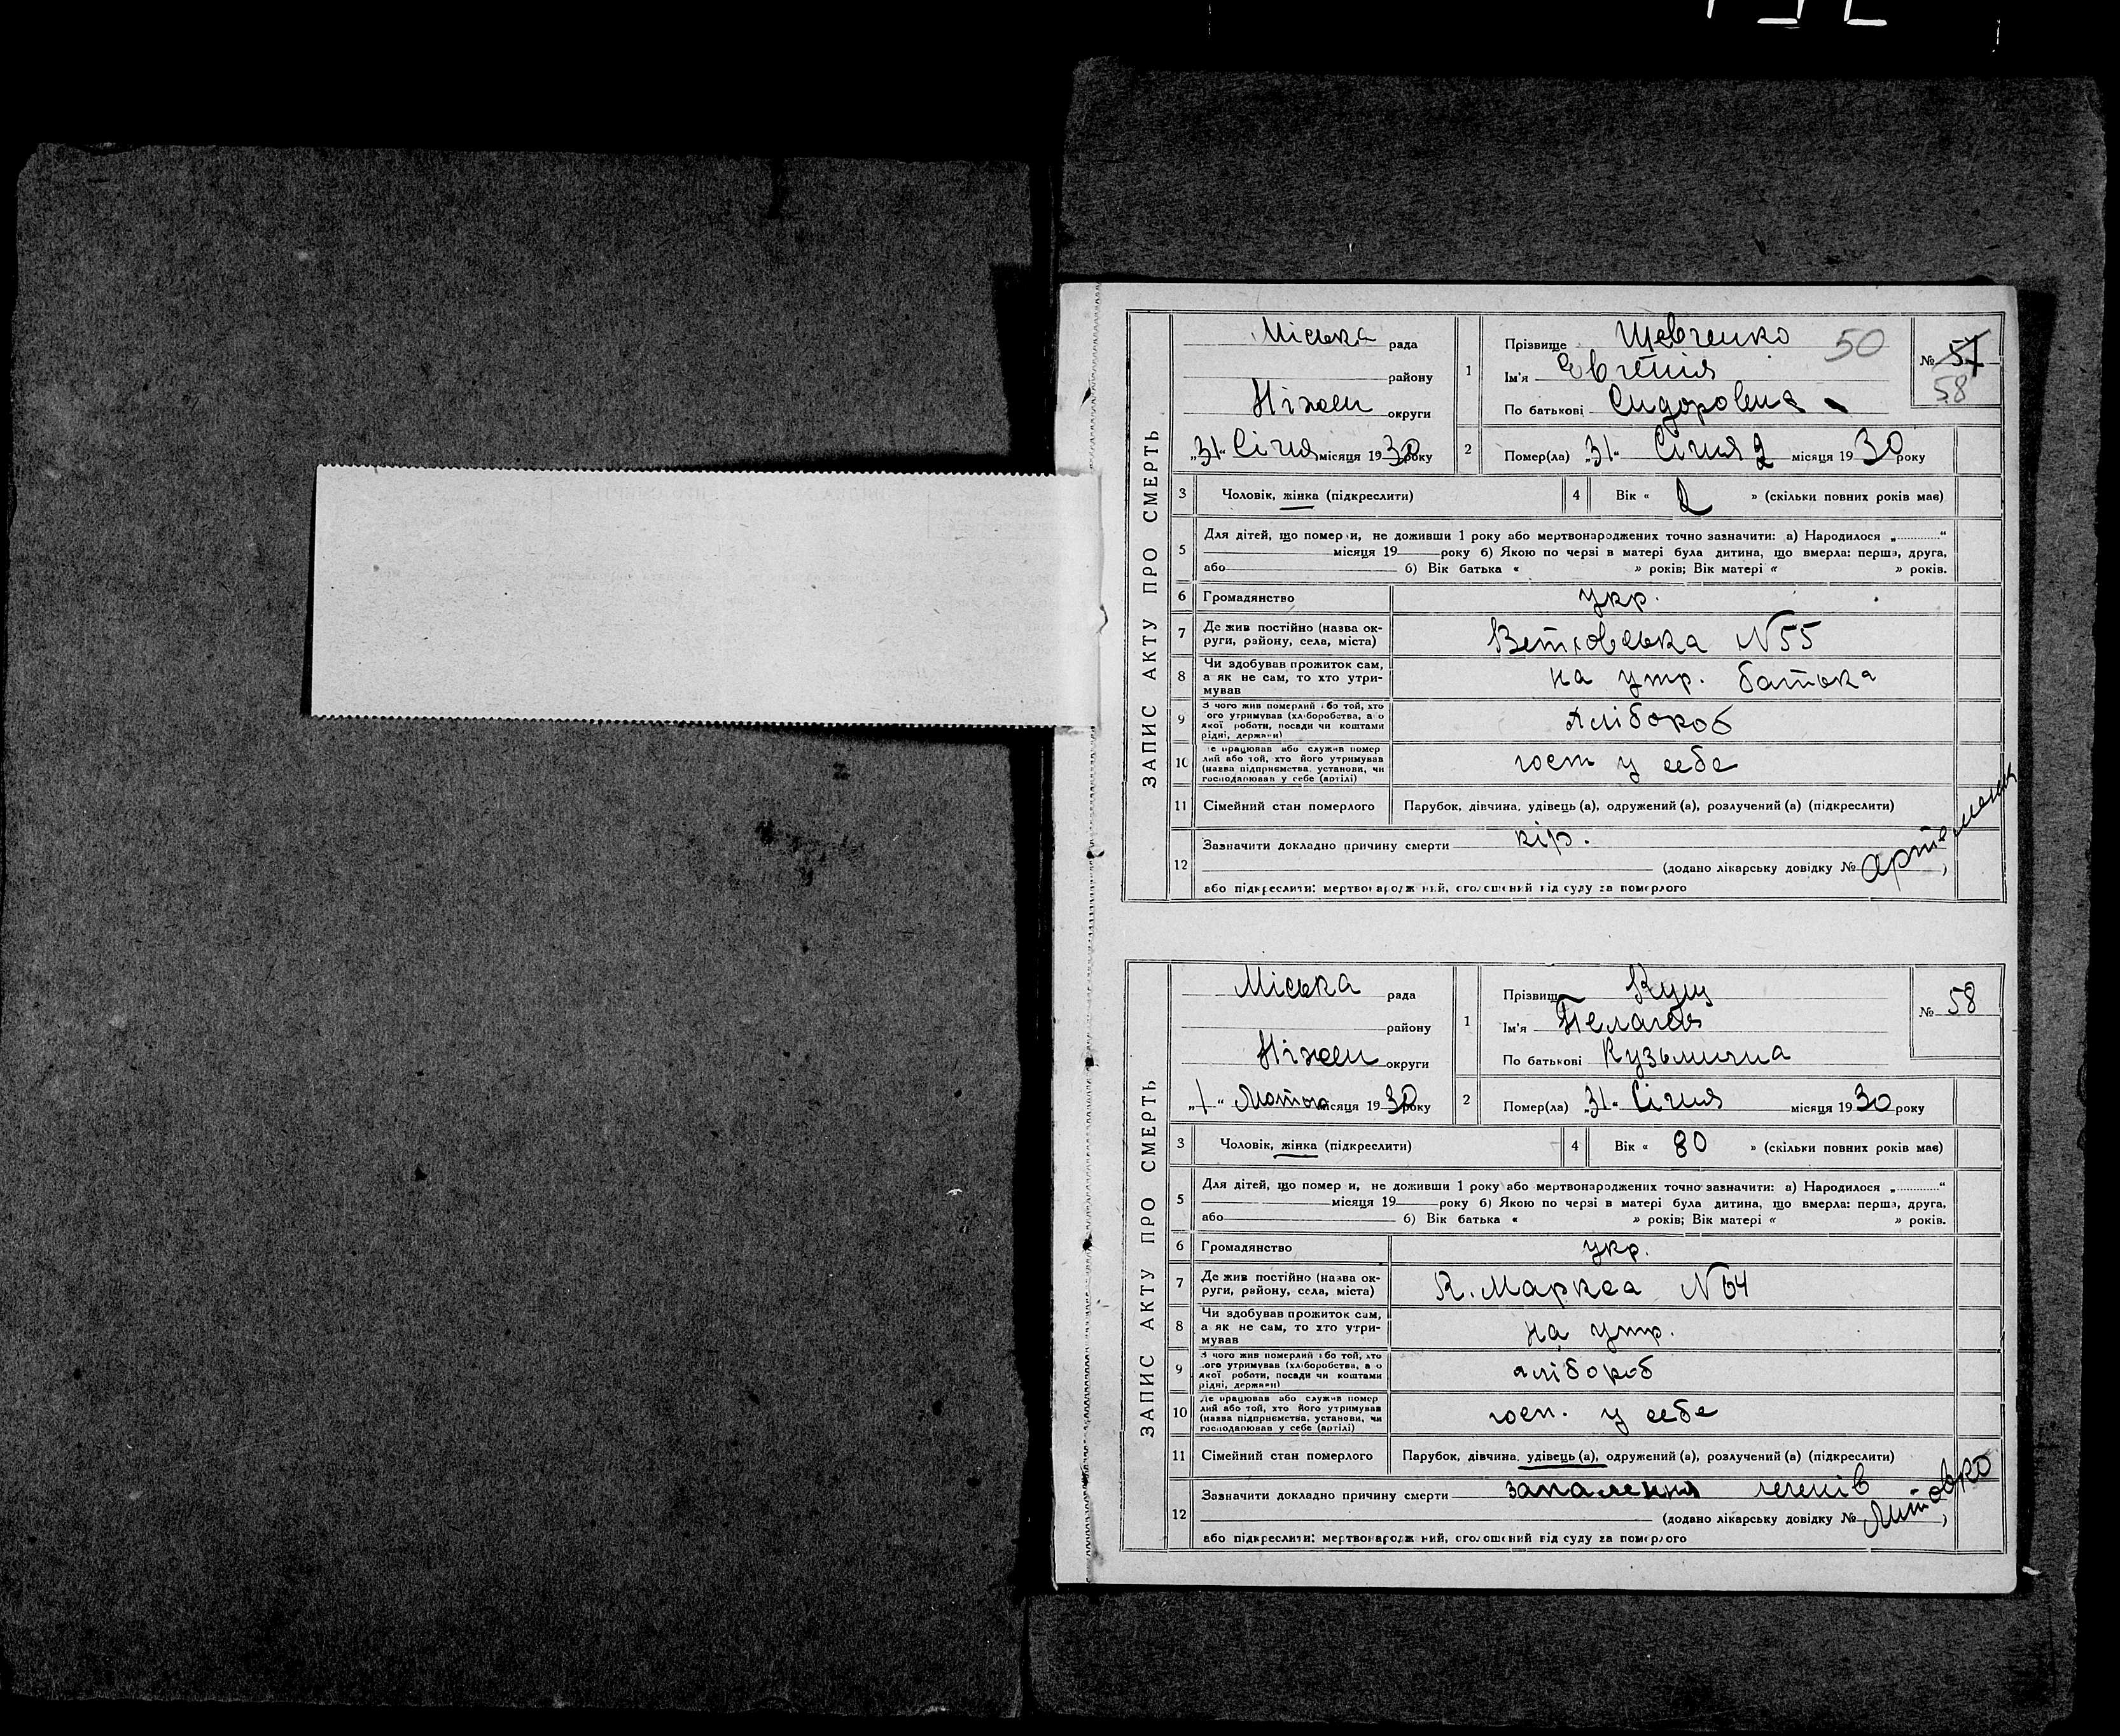 ЗАПИС АКТУ ПРО СМЕРТЬ
Міська рада
району
Ніжен округи
„31“ Січня місяця 1930 року
1
Прізвище Шевченко
50
Ім'я Євгенія
По батькові Сидоровна
№ 57
58
2 Помер(ла) „31“ Січня 2 місяця 1930 року
3 Чоловік, жінка (підкреслити)
4 Вік « 2 » (скільки повних років має)
5 Для дітей, що померли, не доживши 1 року або мертвонароджених точно зазначити: а) Народилося „..........“
місяця 19 року б) Якою по черзі в матері була дитина, що вмерла: перша, друга,
або б) Вік батька « » років; Вік матері « » років.
6 Громадянство укр.
7 Де жив постійно (назва ок-
руги, району, села, міста) Ветховська N 55
8 Чи здобував прожиток сам,
а як не сам, то хто утри-
мував на утр. батька
9 З чого жив померлий або той, хто
його утримував (хліборобства, або
якої роботи, посади чи коштами
рідні, держави) хлібороб
10 Де працював або служив помер
лий або той, хто його утримував
(назва підприємства, установи, чи
господарював у себе (артілі) госп у себе
11 Сімейний стан померлого Парубок, дівчина, удівець (а), одружений (а), розлучений (а) (підкреслити)
12 Зазначити докладно причину смерти кір.
(додано лікарську довідку № )
або підкреслити: мертвонароджений, оголошений від суду за померлого
ЗАПИС АКТУ ПРО СМЕРТЬ
Міська рада
району
Ніжен округи
„1“ Лютого місяця 1930 року
1
Прізвище Кущ
Ім'я Пелагея
По батькові Кузьмична
№ 58
2 Помер(ла) „31“ Січня місяця 1930 року
3 Чоловік, жінка (підкреслити)
4 Вік « 80 » (скільки повних років має)
5 Для дітей, що померли, не доживши 1 року або мертвонароджених точно зазначити: а) Народилося „..........“
місяця 19 року б) Якою по черзі в матері була дитина, що вмерла: перша, друга,
або б) Вік батька « » років; Вік матері « » років.
6 Громадянство укр.
7 Де жив постійно (назва ок-
руги, району, села, міста) К. Маркса N 64
8 Чи здобував прожиток сам,
а як не сам, то хто утри-
мував на утр.
9 З чого жив померлий або той, хто
його утримував (хліборобства, або
якої роботи, посади чи коштами
рідні, держави) хлібороб
10 Де працював або служив помер
лий або той, хто його утримував
(назва підприємства, установи, чи
господарював у себе (артілі) госп. у себе
11 Сімейний стан померлого Парубок, дівчина, удівець (а), одружений (а), розлучений (а) (підкреслити)
12 Зазначити докладно причину смерти запалення легенів
(додано лікарську довідку № )
або підкреслити: мертвонароджений, оголошений від суду за померлого